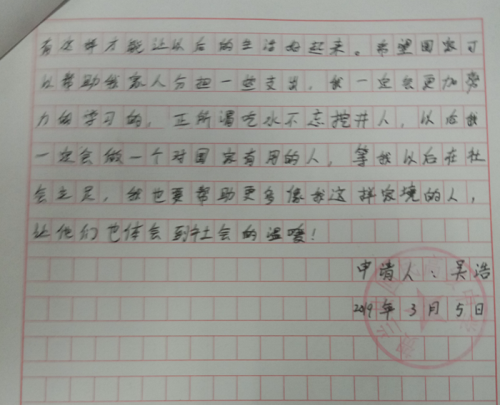 有这样才能让以后的生活好起来。希望国家可
以帮助我家人分担一些支出，我一定会更加努
力的学习的，正所谓吃水不忘挖井人，以后我
一定会做一个对国家有用的人，等我以后在社
会立足，我也要帮助更多像我这样家境的人，
让他们也体会到社会的温暖！
申请人：吴浩
2019年3月5日